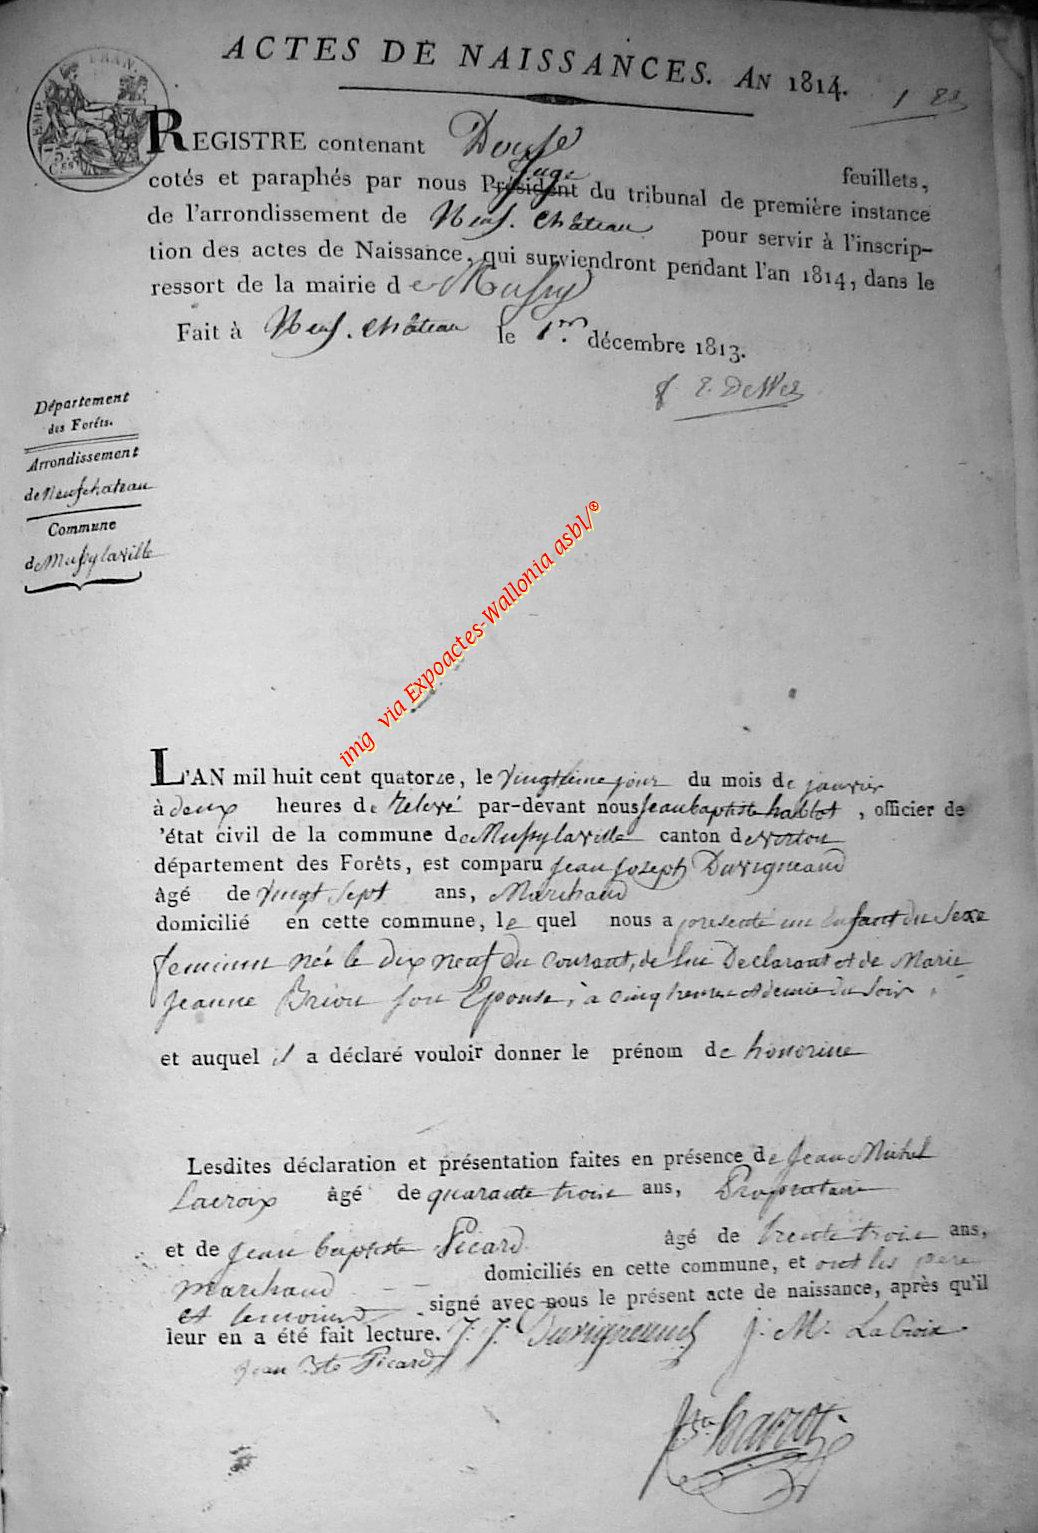 ACTES DE NAISSANCES. AN 1814.
EMP. FRAN.
REGISTRE contenant Douse feuillets,
cotés et paraphés par nous Président Juge du tribunal de première instance
de l'arrondissement de Neuf-château pour servir à l'inscrip-
tion des actes de Naissance, qui surviendront pendant l'an 1814, dans le
ressort de la mairie de Mussy
Fait à Neuf-château le 1er décembre 1813.
Département
des Forêts.
Arrondissement
de Neufchateau
Commune
de Mussylaville
img via Expoactes-Wallonia asbl/®
L'AN mil huit cent quatorze, le vingtième jour du mois de janvier
à deux heures de relevé par-devant nous jean baptiste , officier de
'état civil de la commune de Mussylaville canton de virton
département des Forêts, est comparu jean joseph Duvigneaud
âgé de vingt sept ans, Marchand
domicilié en cette commune, le quel nous a presenté un Enfant du Sexe
feminin née le dix neuf du courant, de lui Declarant et de Marie
jeanne Brion son Epouse, a cinq heures et demie du soir
et auquel il a déclaré vouloir donner le prénom de honorine
Lesdites déclaration et présentation faites en présence de jean Michel
Lacroix âgé de quarante trois ans, Proprietaire
et de jean baptiste Picard âgé de trente trois ans,
marchand domiciliés en cette commune, et ont les pere
et temoins signé avec nous le présent acte de naissance, après qu'il
leur en a été fait lecture. J. J. Duvigneaud J. M. LaCroix
jean Bte Picard